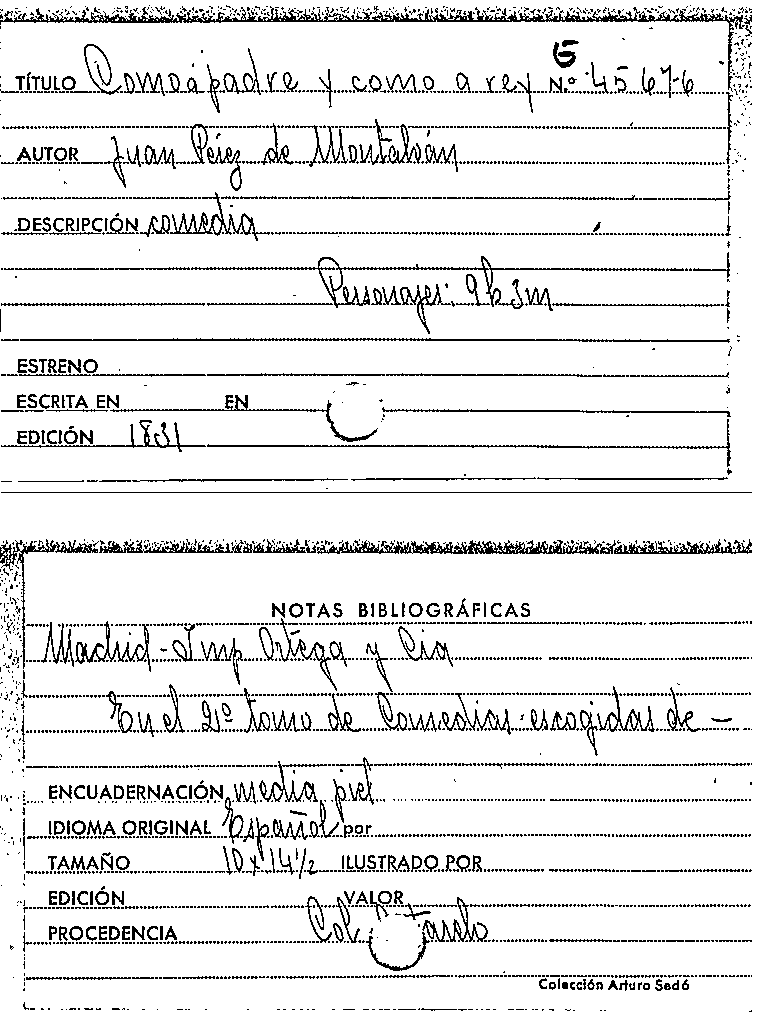 G
TÍTULO Como á padre y como a rey N.º 45676
AUTOR Juan Pérez de Montalván
DESCRIPCIÓN comedia
Personajes: 9h 3m
ESTRENO
ESCRITA EN EN
EDICIÓN 1831
NOTAS BIBLIOGRÁFICAS
Madrid - Imp Ortega y Cia
En el 2º tomo de Comedias escogidas de —
ENCUADERNACIÓN media piel
IDIOMA ORIGINAL Español por
TAMAÑO 10 x 14½ ILUSTRADO POR
EDICIÓN VALOR
PROCEDENCIA Col.
Colección Arturo Sedó